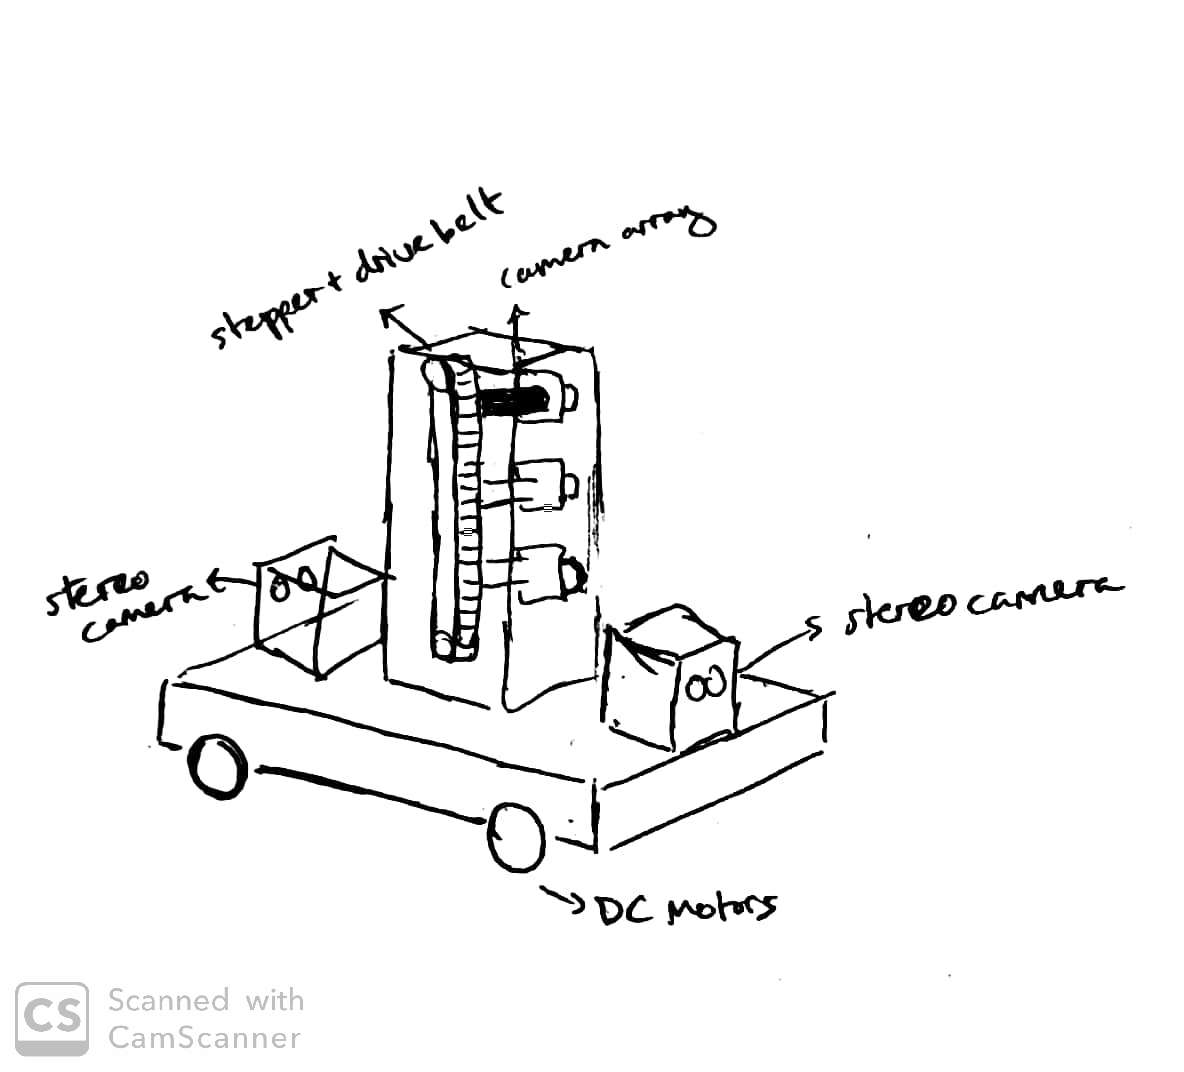 stepper + drive belt
camera array
stereo
camera
stereo camera
DC Motors
CS
Scanned with
CamScanner